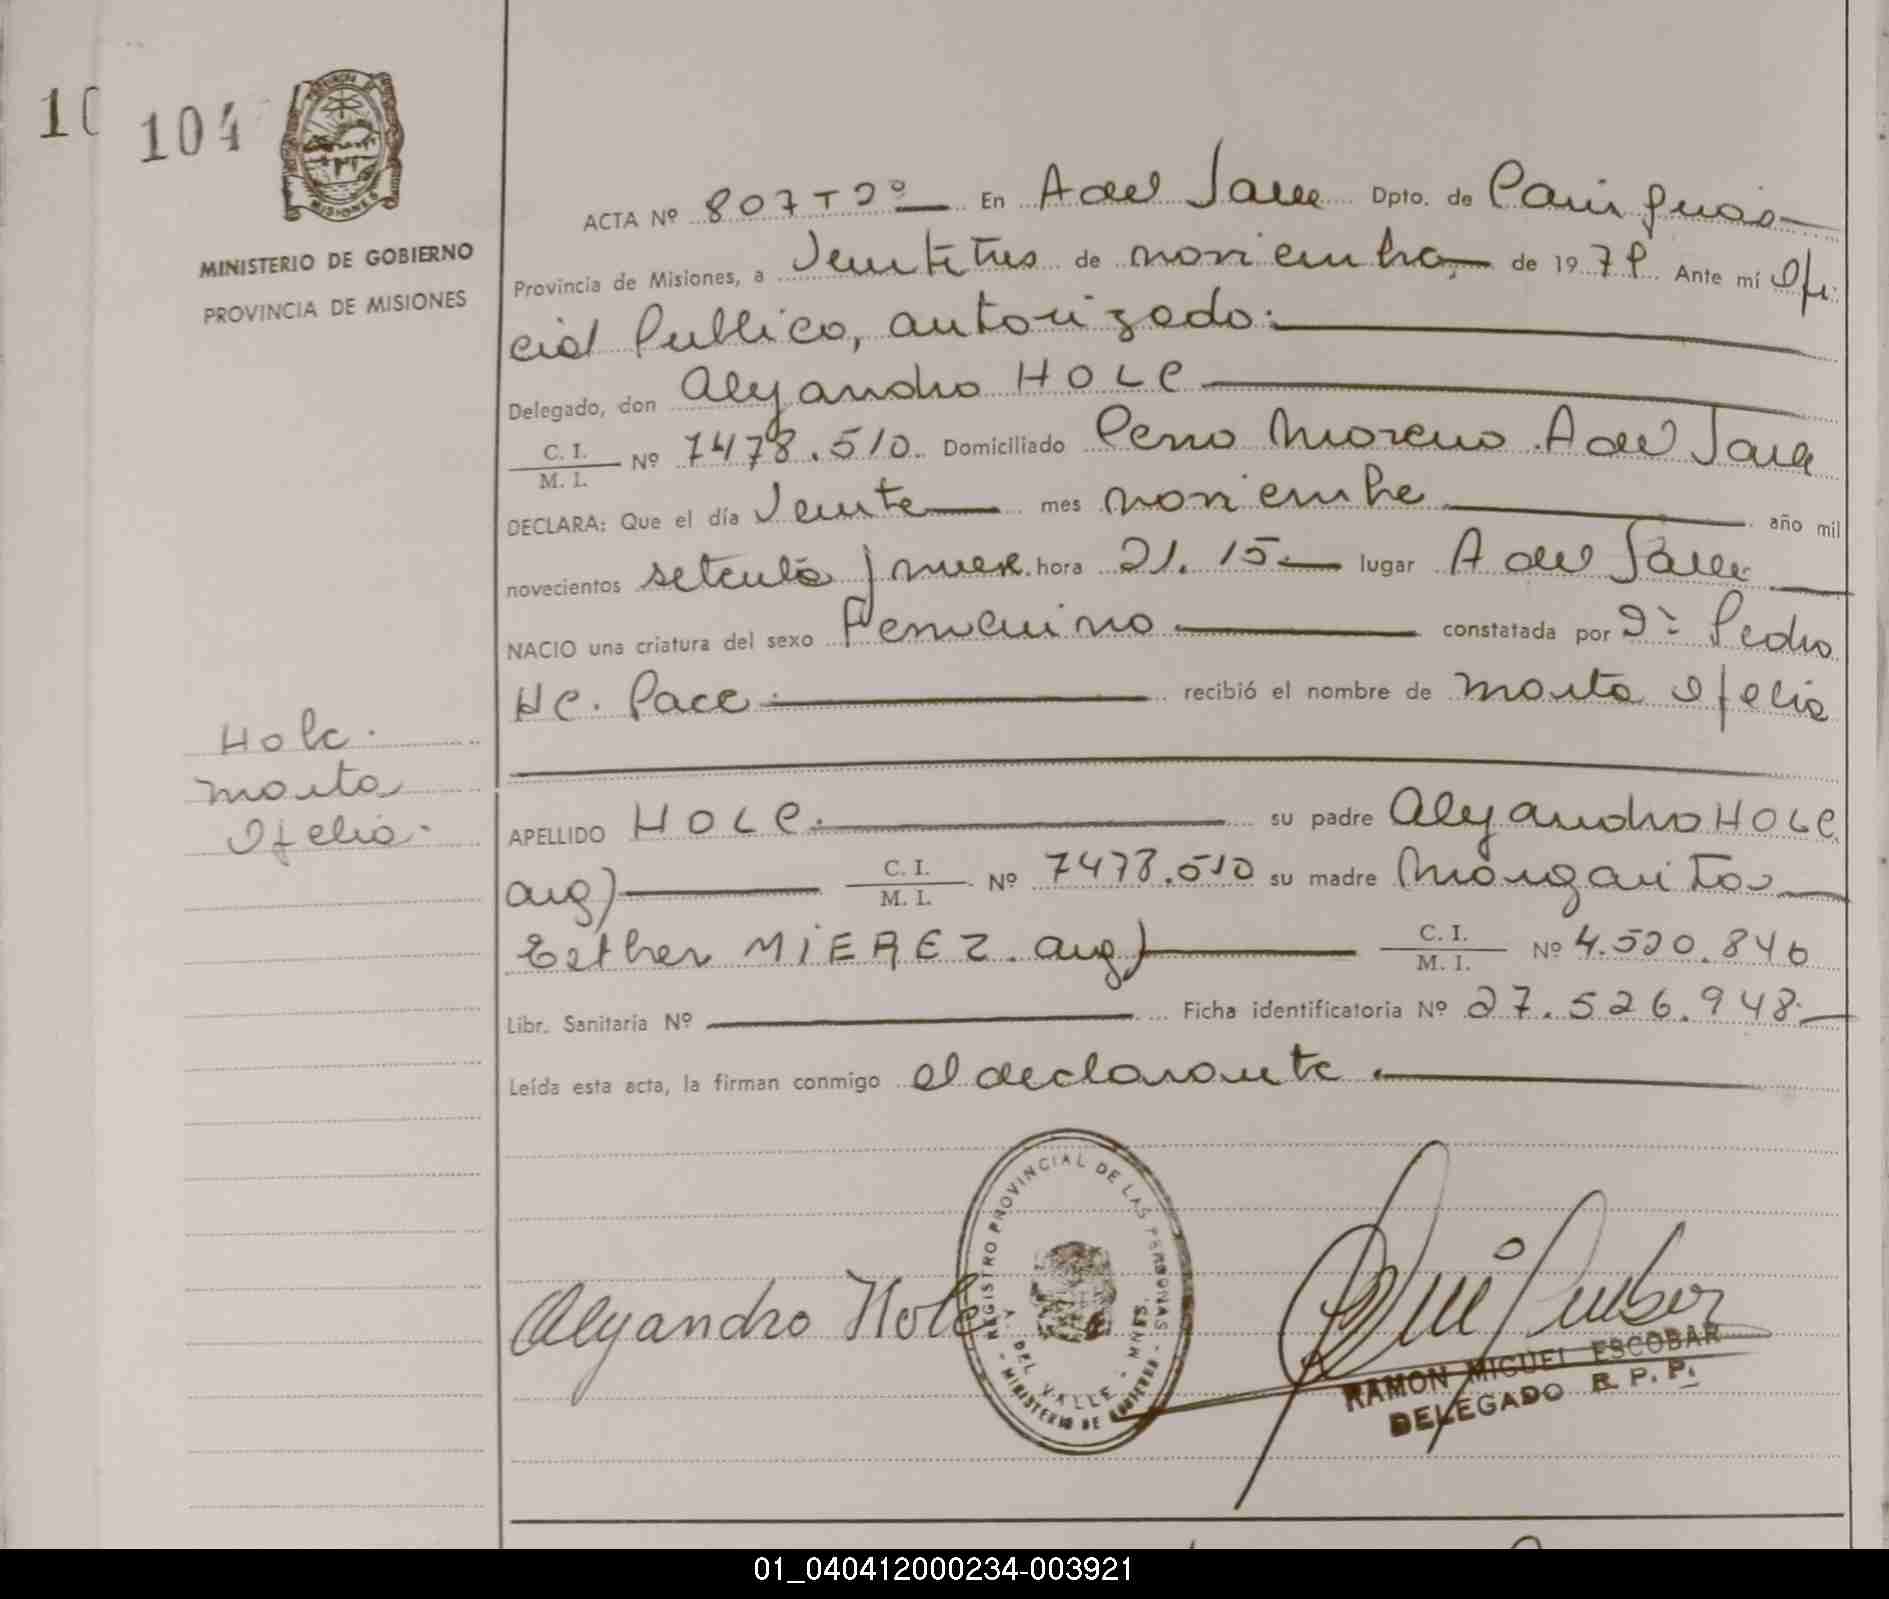 10
104
MISIONES
MINISTERIO DE GOBIERNO
PROVINCIA DE MISIONES
ACTA Nº 807 T 2º En A del Valle Dpto. de Cainguas
Provincia de Misiones, a Veintitres de noviembre de 1979 Ante mí Ofi
cial Publico, autorizado.
Delegado, don Alejandro HOLC
C. I.
M. I. Nº 7478.510. Domiciliado Perro Moreno. A del Valle
DECLARA: Que el día Veinte mes noviembre año mil
novecientos setenta y nueve hora 21.15 lugar A del Valle
NACIO una criatura del sexo Femenino constatada por Dr Pedro
HC. Pace recibió el nombre de Marta Ofelia
Holc.
Marta
Ofelia.
APELLIDO HOLC. su padre Alejandro HOLC
arg) C. I.
M. I. Nº 7478.510 su madre Margarita
Esther MIEREZ. arg) C. I.
M. I. Nº 4.520.846
Libr. Sanitaria Nº Ficha identificatoria Nº 27.526.948
Leída esta acta, la firman conmigo el declarante.
REGISTRO PROVINCIAL DE LAS PERSONAS
Aº DEL VALLE - MNES.
- MINISTERIO DE GOBIERNO -
Alejandro Holc
RAMON MIGUEL ESCOBAR
DELEGADO R. P. P.
01_040412000234-003921